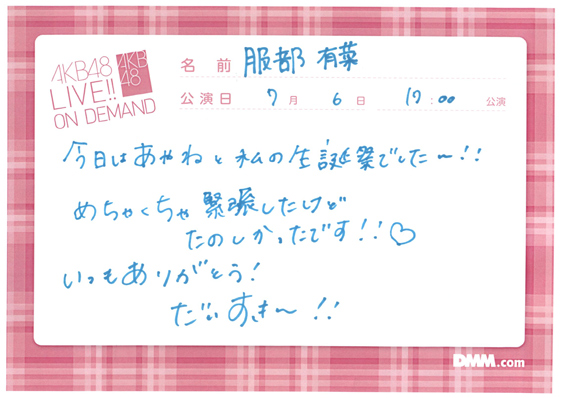 AKB48
LIVE!!
ON DEMAND
AKB
48
名前 服部 有菜
公演日 7月 6日 17:00 公演
今日はあやねと私の生誕祭でした〜!!
めちゃくちゃ緊張したけど
たのしかったです!!♡
いつもありがとう!
だいすき〜!!
DMM.com